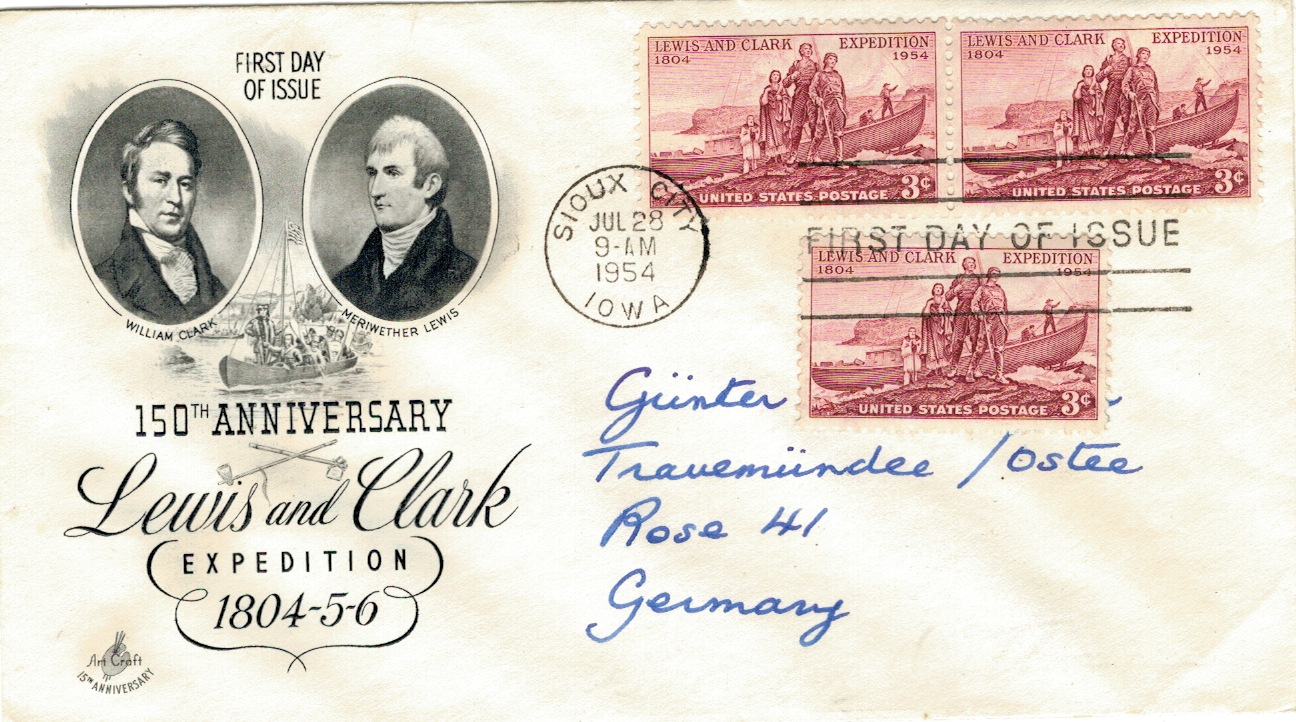 FIRST DAY
OF ISSUE
WILLIAM CLARK
MERIWETHER LEWIS
150TH ANNIVERSARY
Lewis and Clark
EXPEDITION
1804-5-6
Art Craft
15TH ANNIVERSARY
LEWIS AND CLARK EXPEDITION
1804 1954
UNITED STATES POSTAGE 3¢
LEWIS AND CLARK EXPEDITION
1804 1954
UNITED STATES POSTAGE 3¢
SIOUX CITY
JUL 28
9-AM
1954
IOWA
FIRST DAY OF ISSUE
LEWIS AND CLARK EXPEDITION
1804 1954
UNITED STATES POSTAGE 3¢
Günter
Travemündee / Ostee
Rose 41
Germany